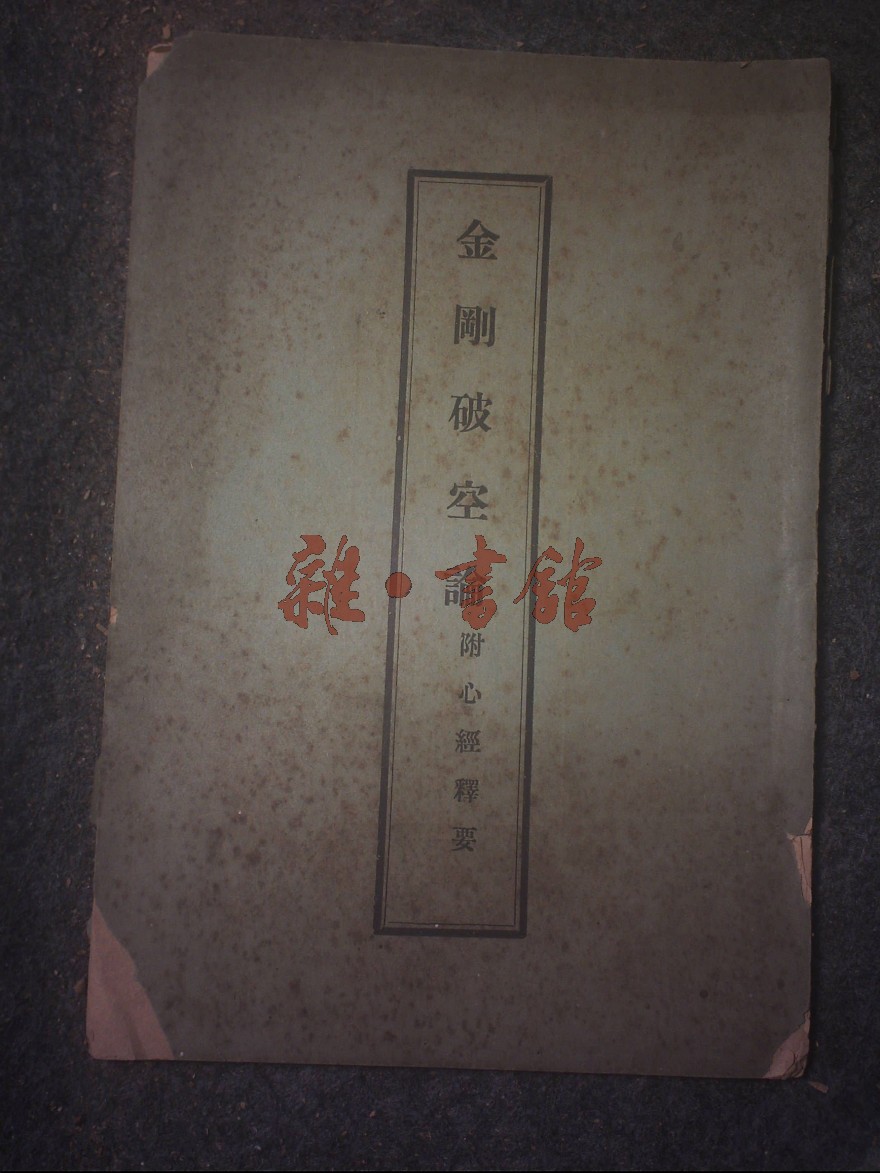 金剛破空論附心經釋要
雜·書館